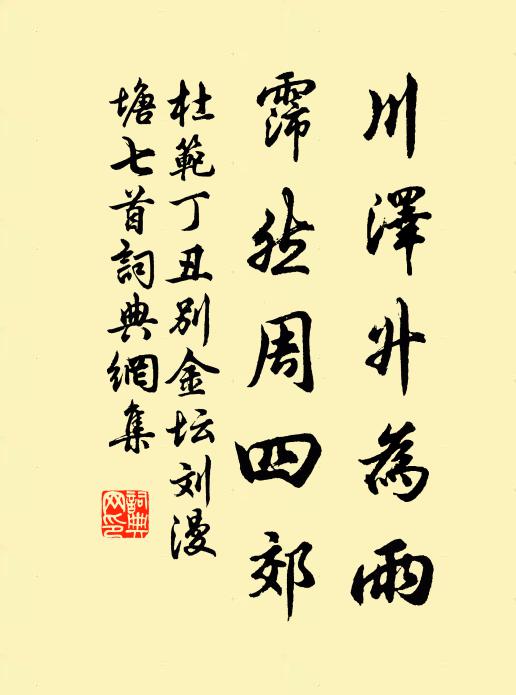 川澤升為雨
霈然周四郊
杜範丁丑别金坛刘漫
塘七首詞典網集
詞典網印